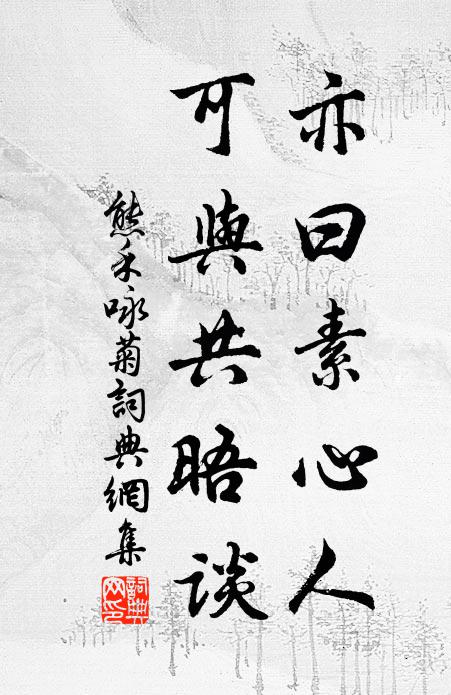 亦曰素心人
可與共晤談
熊禾咏菊詞典網集
詞典网印